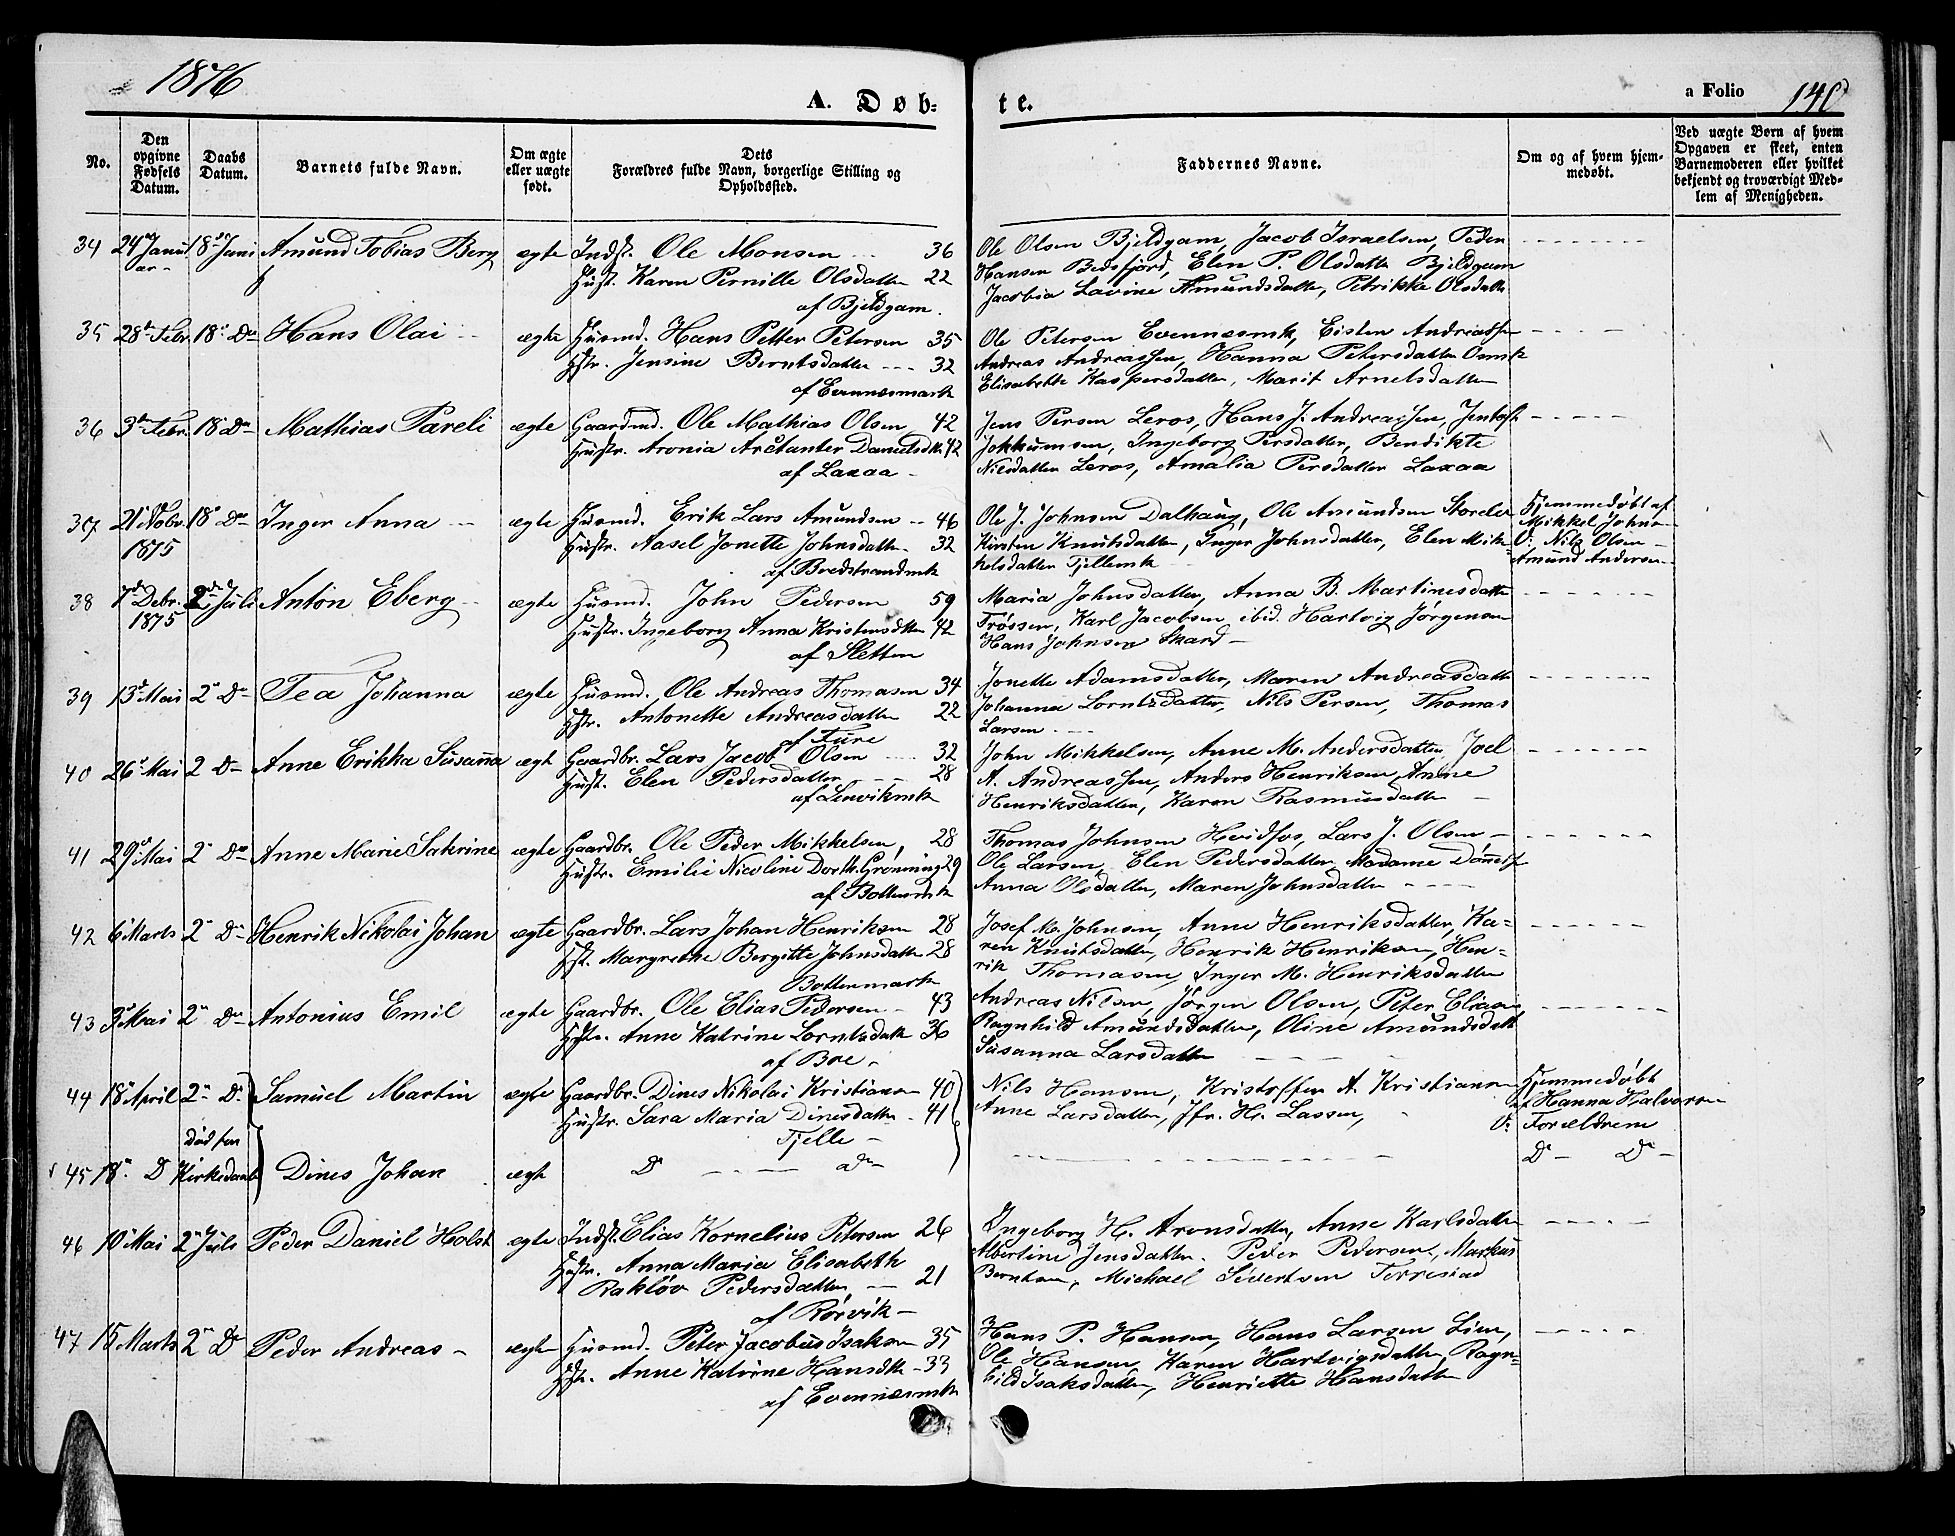 1876
A. Døb-
te.
a Folio 140
No.
Den opgivne Fødsels Datum.
Daabs Datum.
Barnets fulde Navn.
Om ægte eller uægte født.
Dets Forældres fulde Navn, borgerlige Stilling og Opholdssted.
Faddernes Navne.
Om og af hvem hjemmedøbt.
Ved uægte Børn af hvem Opgaven er skeet, enten Barnemoderen eller hvilket bekjendt og troværdigt Medlem af Menigheden.
34 24 Janu- 18 Juni Amund Tobias Berg ægte Indst. Ole Monsen 36
ar Hust. Karen Pernille Olsdatter 22
af Bjeldgam.
Ole Olsen Bjeldgam, Jacob Israelsen, Peder
Hansen Bedsfjord, Elen P. Olsdatter Bjeldgam
Jacobia Lavine Amundsdatter, Petrikke Olsdatter
35 28 Febr. 18 Do Hans Olai ægte Husmd. Hans Petter Petersen 35
Hstr. Jensine Berntsdatter 32
af Evennesmark
Ole Petersen Evennesmk, Eisten Andreassen
Andreas Andreassen, Hanna Petersdatter Osmk
Elisabeth Kaspersdatter, Marit Arnetsdatter
36 3 Febr. 18 Do Mathias Pareli ægte Gaardmd. Ole Mathias Olsen 42
Hustr. Aronia Arctanter Danielsdtr 42
af Laxaa
Jens Persen Leros, Hans J. Andreassen, Jentoft
Jokkumsen, Ingeborg Persdatter, Bendikte
Nilsdatter Leros, Amalia Persdatter Laxaa
37 21 Nobr. 18 Do Inger Anna ægte Husmd. Erik Lars Amundsen 46
1875 Hustr. Aasel Jonette Johnsdatter 32
af Bredstrandmk
Ole J. Johnsen Dalhaug, Ole Amundsen Storelv
Kirsten Knutsdatter, Inger Johnsdatter, Elen Mik-
kelsdatter Tjellemk
Hjemmedøbt af
Mikkel Johns-
V: Nils Olsen
Amund Andersen
38 7 Debr. 2 Juli Anton Eberg ægte Husmd. John Pedersen 59
1875 Hustr. Ingeborg Anna Kristensdtr 42
af Sletten
Maria Johnsdatter, Anna B. Martinesdatter
Trøssen, Karl Jacobsen ibid. Hartvig Jørgensen
Hans Johnsen Skard
39 13 Mai 2 Do Tea Johanna ægte Husmd. Ole Andreas Thomasen 34
Hstr. Antonette Andreasdatter 22
af Fure
Jonette Adamsdatter, Maren Andreasdatter
Johanna Lorntsdatter, Nils Persen, Thomas
Larsen
40 26 Mai 2 Do Anne Erikka Susanna ægte Gaardbr. Lars Jacob Olsen 32
Hust. Elen Pedersdatter 28
af Lenvikmk
John Mikkelsen, Anne M. Andersdatter, Joel
A. Andreassen, Anders Henriksen, Anne
Henriksdatter, Karen Rasmusdatter
41 29 Mai 2 Do Anne Marie Sakrine ægte Gaardbr. Ole Peder Mikkelsen, 28
Hustr. Emilie Nicoline Dorth. Grønning 29
af Bottenmk
Thomas Johnsen Hvidfos, Lars J. Olsen
Ole Larsen, Elen Pedersdatter, Madame
Anna Olsdatter, Maren Johnsdatter
42 6 Marts 2 Do Henrik Nikolai Johan ægte Gaardbr. Lars Johan Henriksen 28
Hst. Margrethe Bergitte Johnsdatter 28
Bottenmark
Josef M. Johnsen, Anne Henriksdatter, Ka-
ren Knutsdatter, Henrik Henriksen, Hen-
rik Thomasen, Inger M. Henriksdatter
43 3 Mai 2 Do Antonius Emil ægte Gaardbr. Ole Elias Pedersen 43
Hstr. Anne Katrine Lorntsdatter 36
af Boe
Andreas Nilsen, Jørgen Olsen, Peter Eliasen
Ragnhild Amundsdatter, Oline Amundsdatt
Susanna Larsdatter
44 18 April 2 Do Samuel Martin ægte Gaardbr. Dines Nikolai Kristiansen 40
Hustr. Sara Maria Dinesdatter 41
Tjelle
Nils Hansen, Kristoffer A. Kristiansen
Anne Larsdatter, Jfr. Hr. Lassen,
Hjemmedøbt
af Hanna Halvorsen
V: Forældrene
45 18 D død før Kirkedaab Dines Johan ægte Do Do
Do Do
46 10 Mai 2 Juli Peder Daniel Holst ægte Indst. Elias Kornelius Petersen 26
Hustr. Anna Maria Elisabeth
Rakløv Pedersdatter 21
af Rørvik
Ingeborg H. Aronsdatter, Anne Karlsdatter
Albertine Jensdatter. Peder Pedersen, Markus
Berntsen, Michael Sivertsen
47 15 Marts 2 Do Peder Andreas ægte Husmd. Peter Jacobus Isaksen 35
Hstr. Anne Katrine Hansdtr 33
af Evennesmk
Hans P. Hansen, Hans Larsen Lien,
Ole Hansen, Karen Hartvigsdatter, Ragn-
hild Isaksdatter, Henriette Hansdatter